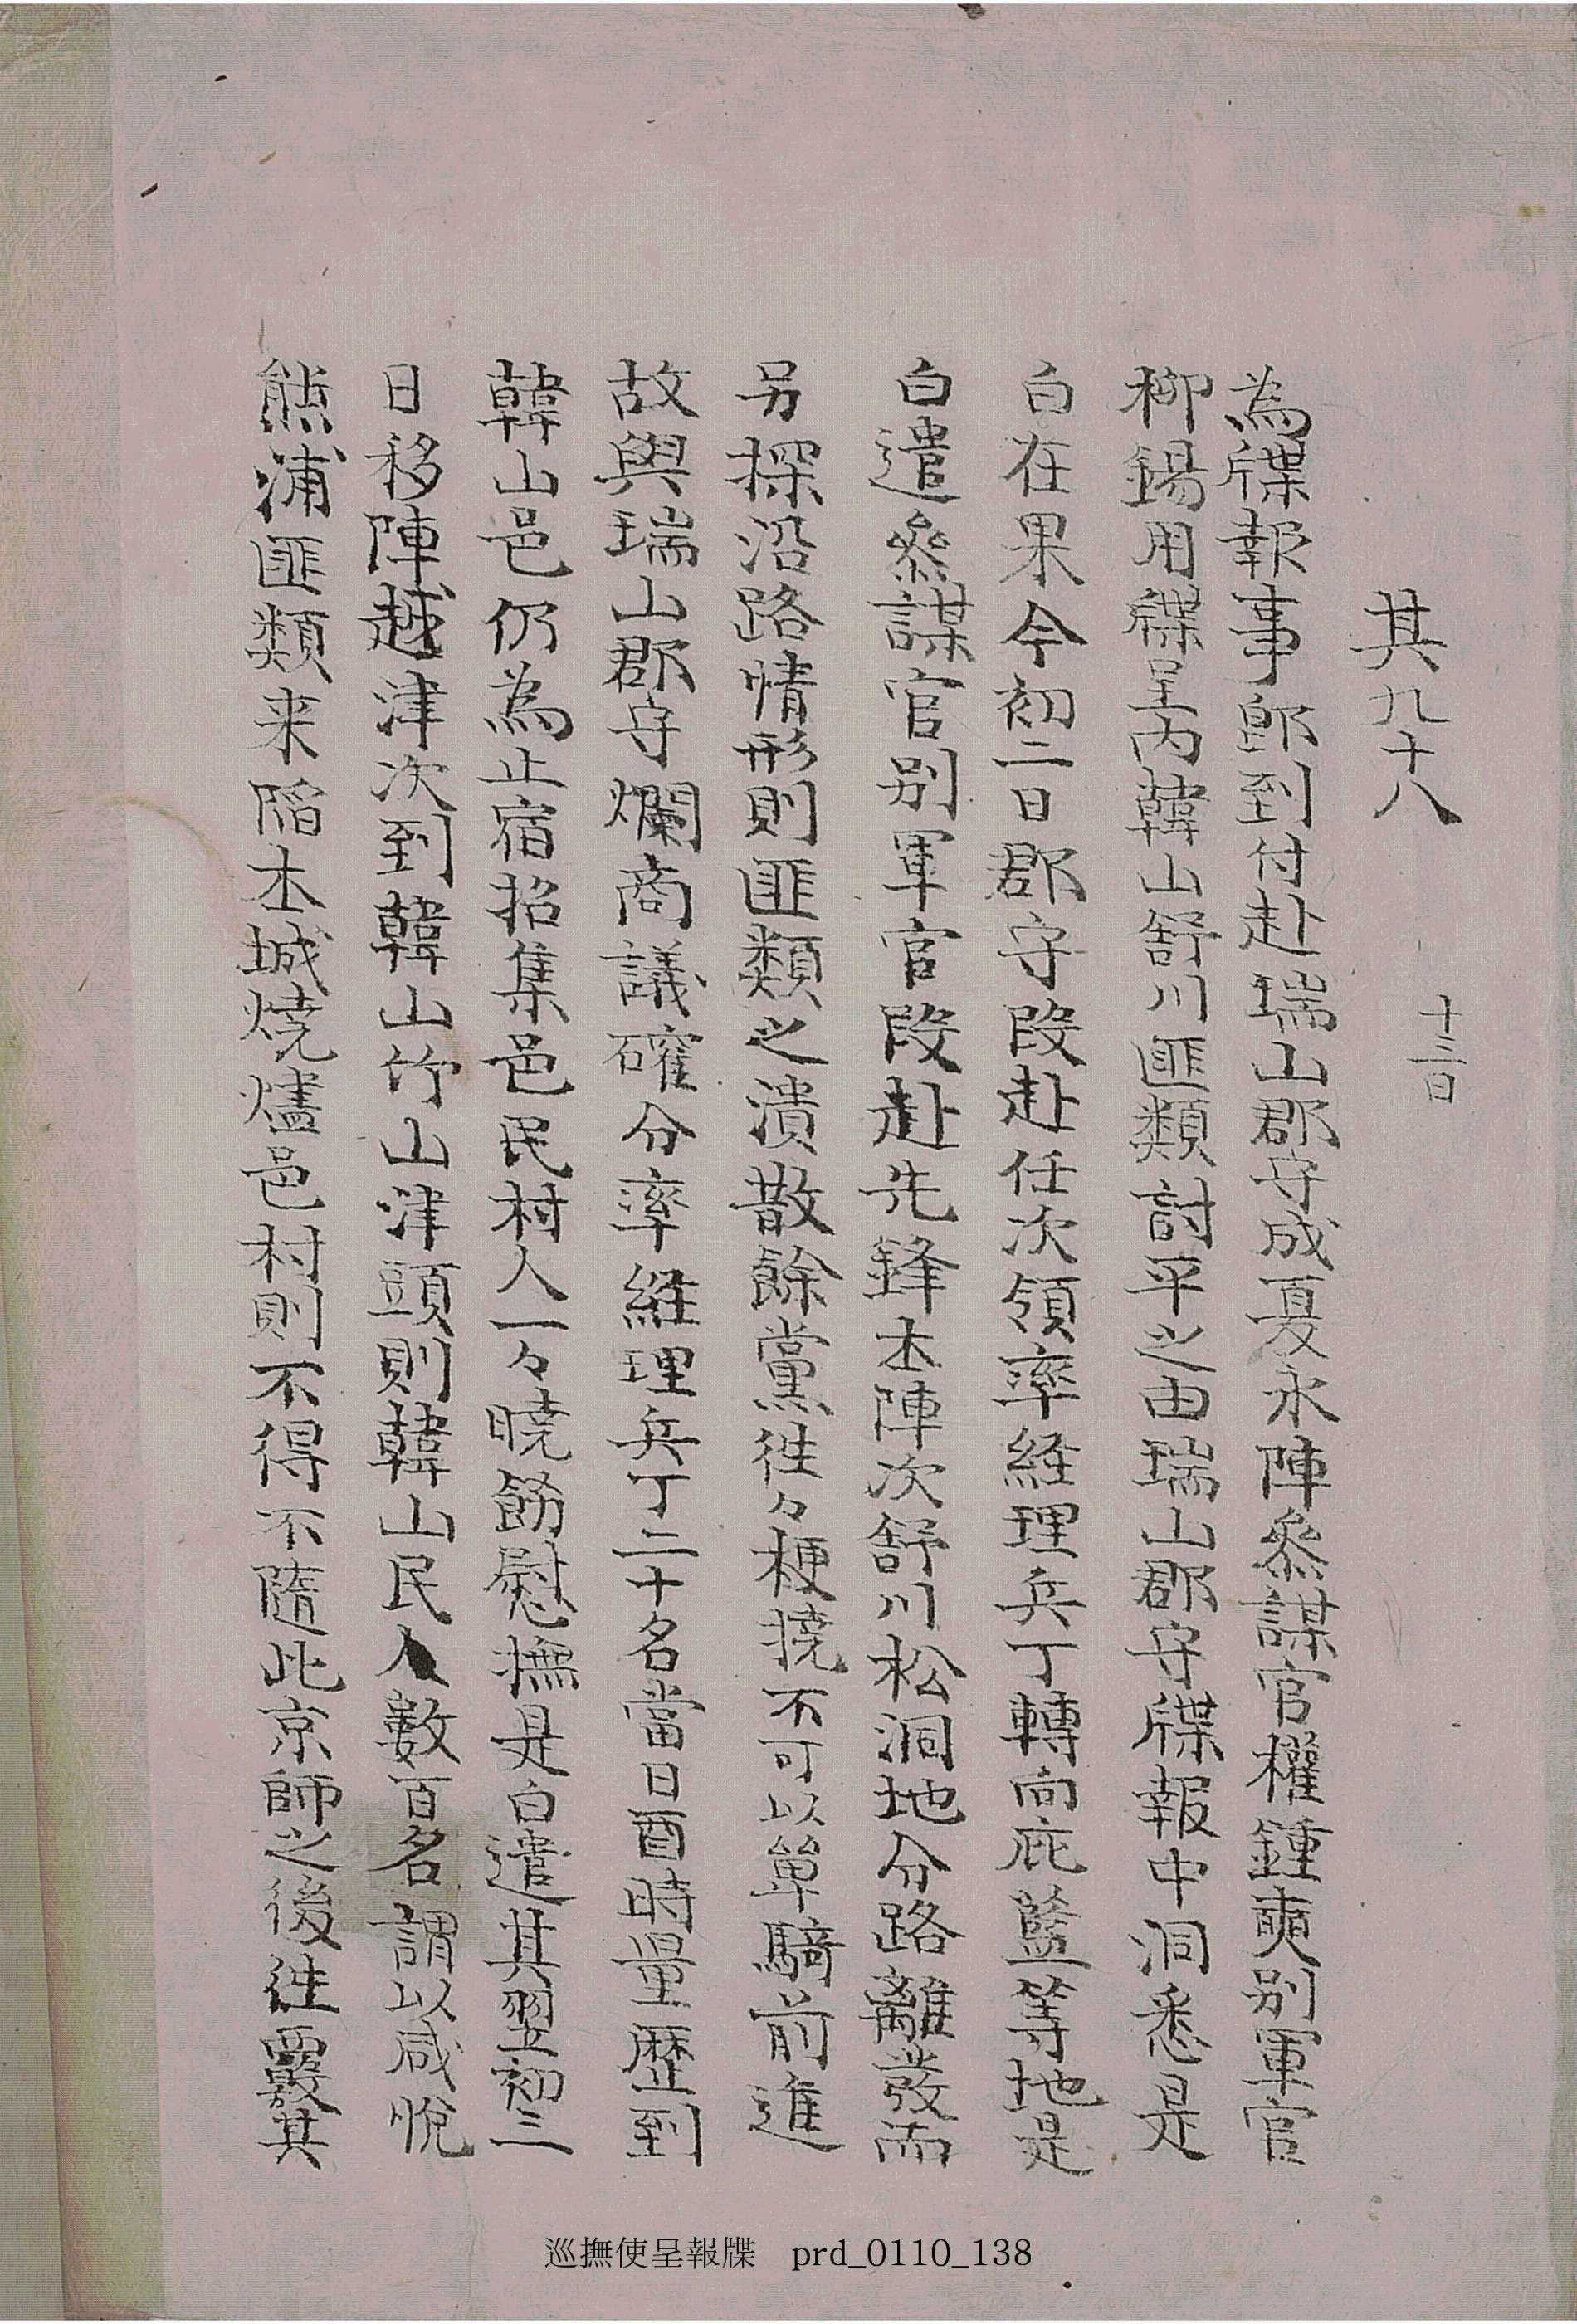 其九十八　十三日
為牒報事卽到付赴瑞山郡守成夏永陣叅謀官權鍾奭別軍官
柳錫用牒呈內韓山舒川匪類討平之由瑞山郡守牒報中洞悉是
白在果今初二日郡守段赴任次領率經理兵丁轉向庇藍等地是
白遣叅謀官別軍官段赴先鋒本陣次舒川松洞地分路離發而
另探沿路情形則匪類之潰散餘黨徃々梗撓不可以單騎前進
故與瑞山郡守爛商議確分率經理兵丁二十名當日酉時量歷到
韓山邑仍為止宿招集邑民村人一々曉飭慰撫是白遣其翌初三
日移陣越津次到韓山竹山津頭則韓山民人數百名謂以咸悅
熊浦匪類来陷本城燒燼邑村則不得不隨此京師之後徃覈其
巡撫使呈報牒　prd_0110_138